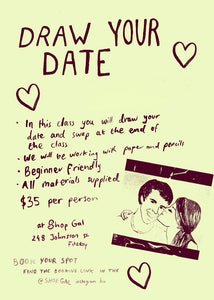 DRAW YOUR
DATE
• In this class you will draw your
date and swap at the end of
the class
• We will be working with paper and pencils
• Beginner friendly
• All materials supplied
$35 per person
at Shop Gal
248 Johnston st
Fitzroy
BOOK YOUR SPOT
FIND THE BOOKING LINK IN THE
@SHOP GAL instagram bio